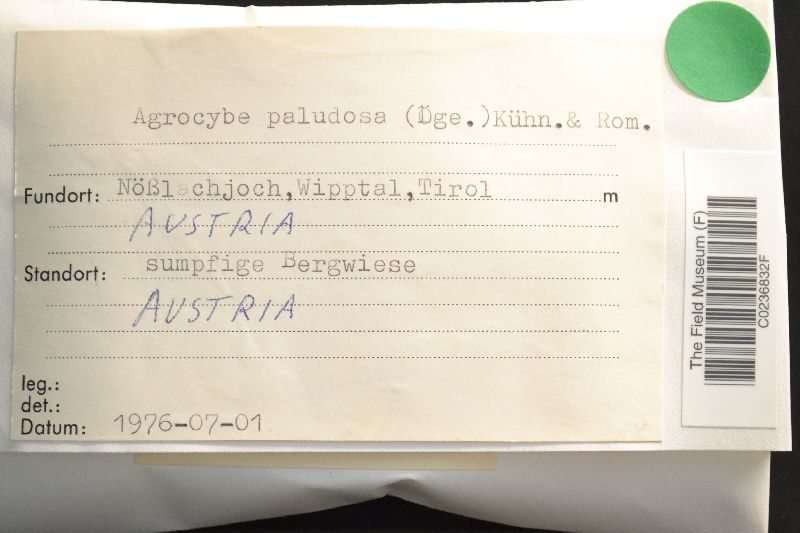 Agrocybe paludosa (Lge.)Kühn.& Rom.
Fundort: Nößlachjoch,Wipptal,Tirol m
AUSTRIA
Standort: sumpfige Bergwiese
AUSTRIA
leg.:
det.:
Datum: 1976-07-01
The Field Museum (F)
C0236832F